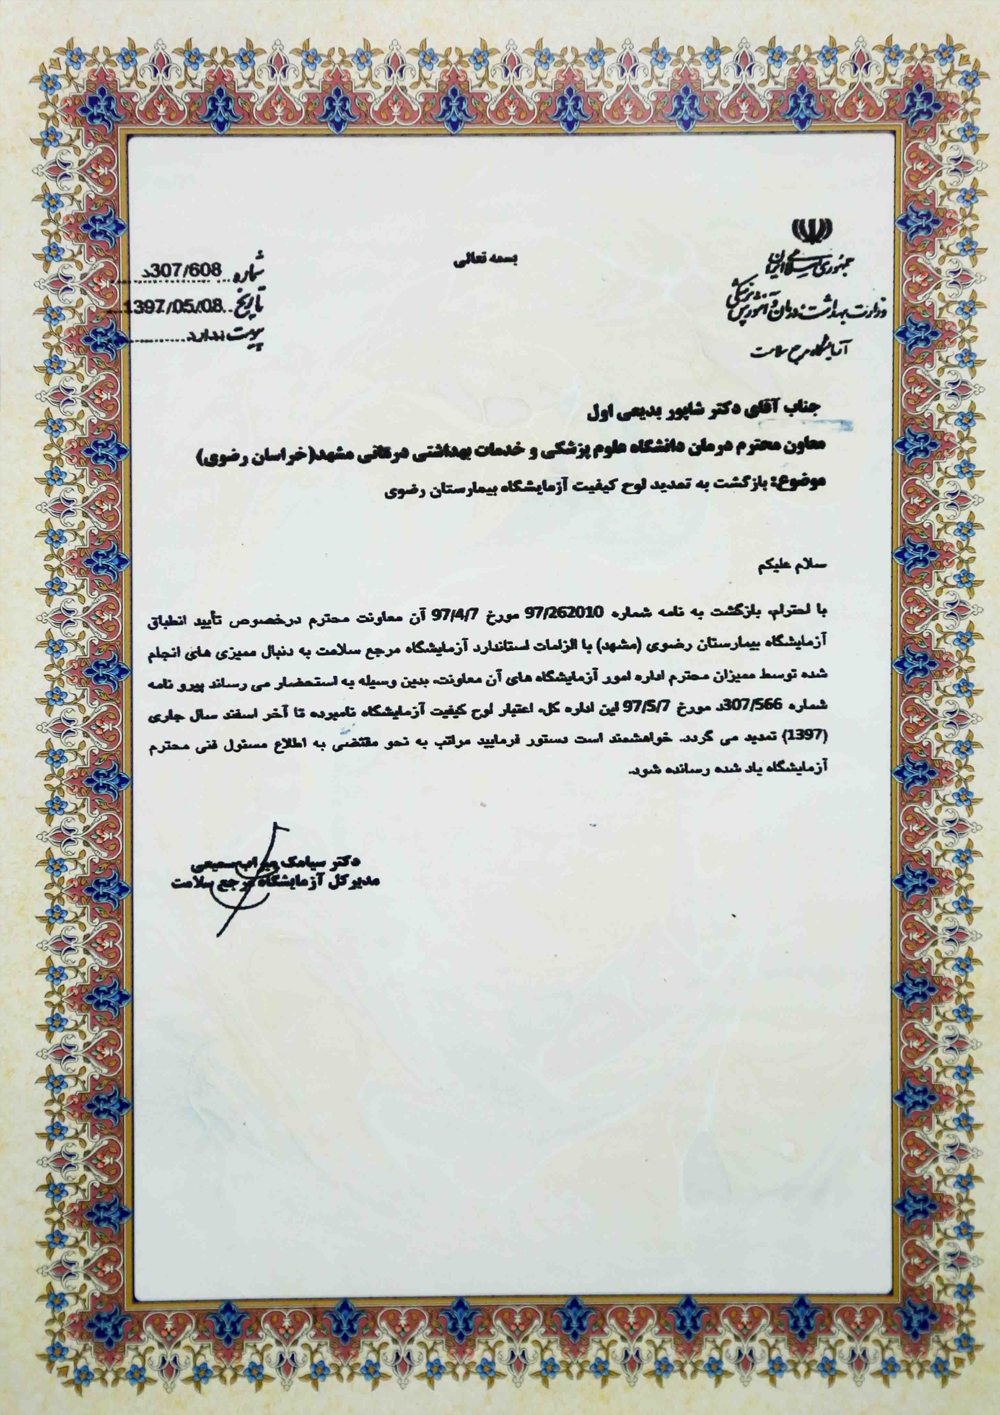 بسمه تعالی
جمهوری اسلامی ایران
وزارت بهداشت، درمان و آموزش پزشکی
آزمایشگاه مرجع سلامت
شماره 307/608د
تاریخ 1397/05/08
پیوست ندارد
جناب آقای دکتر شاپور بدیعی اول
معاون محترم درمان دانشگاه علوم پزشکی و خدمات بهداشتی درمانی مشهد(خراسان رضوی)
موضوع: بازگشت به تمدید لوح کیفیت آزمایشگاه بیمارستان رضوی
سلام علیکم
با احترام، بازگشت به نامه شماره 97/262010 مورخ 97/4/7 آن معاونت محترم درخصوص تأیید انطباق
آزمایشگاه بیمارستان رضوی (مشهد) با الزامات استاندارد آزمایشگاه مرجع سلامت به دنبال ممیزی های انجام
شده توسط ممیزان محترم اداره امور آزمایشگاه های آن معاونت، بدین وسیله به استحضار می رساند پیرو نامه
شماره 307/566د مورخ 97/5/7 این اداره کل، اعتبار لوح کیفیت آزمایشگاه نامبرده تا آخر اسفند سال جاری
(1397) تمدید می گردد. خواهشمند است دستور فرمایید مراتب به نحو مقتضی به اطلاع مسئول فنی محترم
آزمایشگاه یاد شده رسانده شود.
دکتر سیامک میراب سمیعی
مدیرکل آزمایشگاه مرجع سلامت